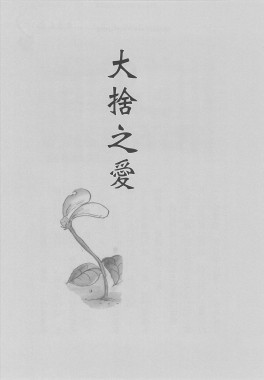 大捨之愛